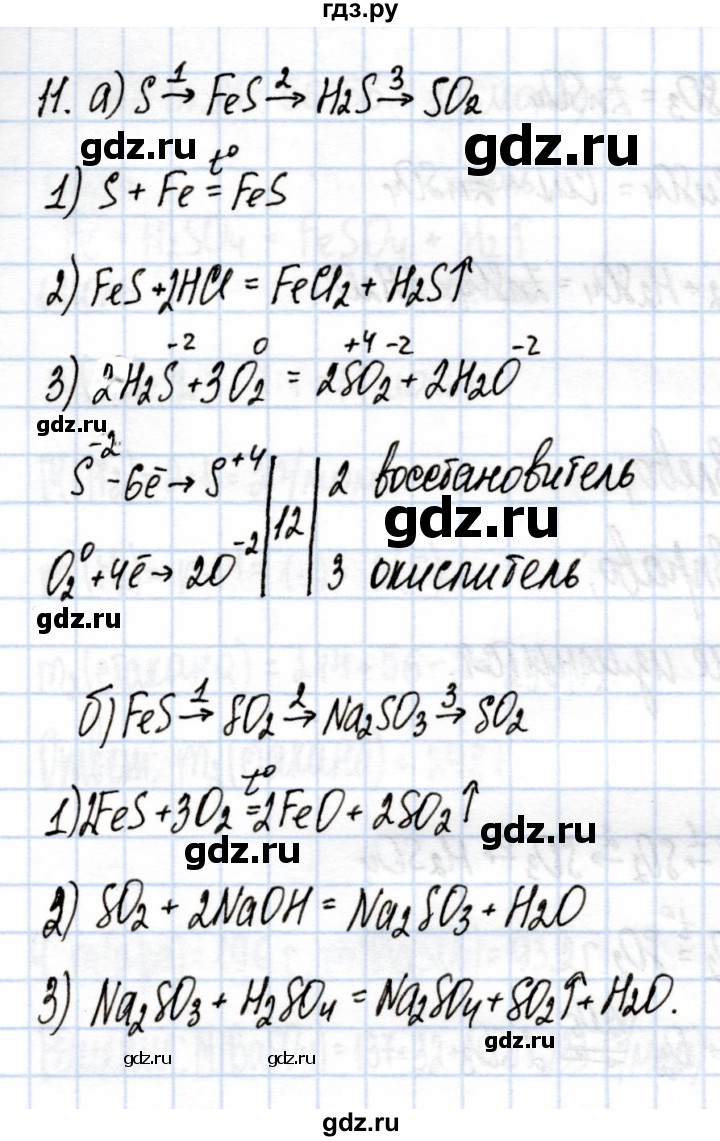 гдз.ру
11. а) S →¹ FeS →² H₂S →³ SO₂
gdz.ru gdz.ru
1) S + Fe =^t° FeS
2) FeS + 2HCl = FeCl₂ + H₂S↑
3) 2H₂S⁻² + 3O₂⁰ = 2S⁺⁴O₂⁻² + 2H₂O⁻²
gdz.ru
S⁻² - 6ē → S⁺⁴ | 12 | 2 восстановитель
gdz.ru
O₂⁰ + 4ē → 2O⁻² | 3 окислитель
gdz.ru
б) FeS →¹ SO₂ →² Na₂SO₃ →³ SO₂
1) 2FeS + 3O₂ =^t° 2FeO + 2SO₂↑
gdz.ru gdz.ru
2) SO₂ + 2NaOH = Na₂SO₃ + H₂O
3) Na₂SO₃ + H₂SO₄ = Na₂SO₄ + SO₂↑ + H₂O.
gdz.ru gdz.ru gdz.ru
gdz.ru